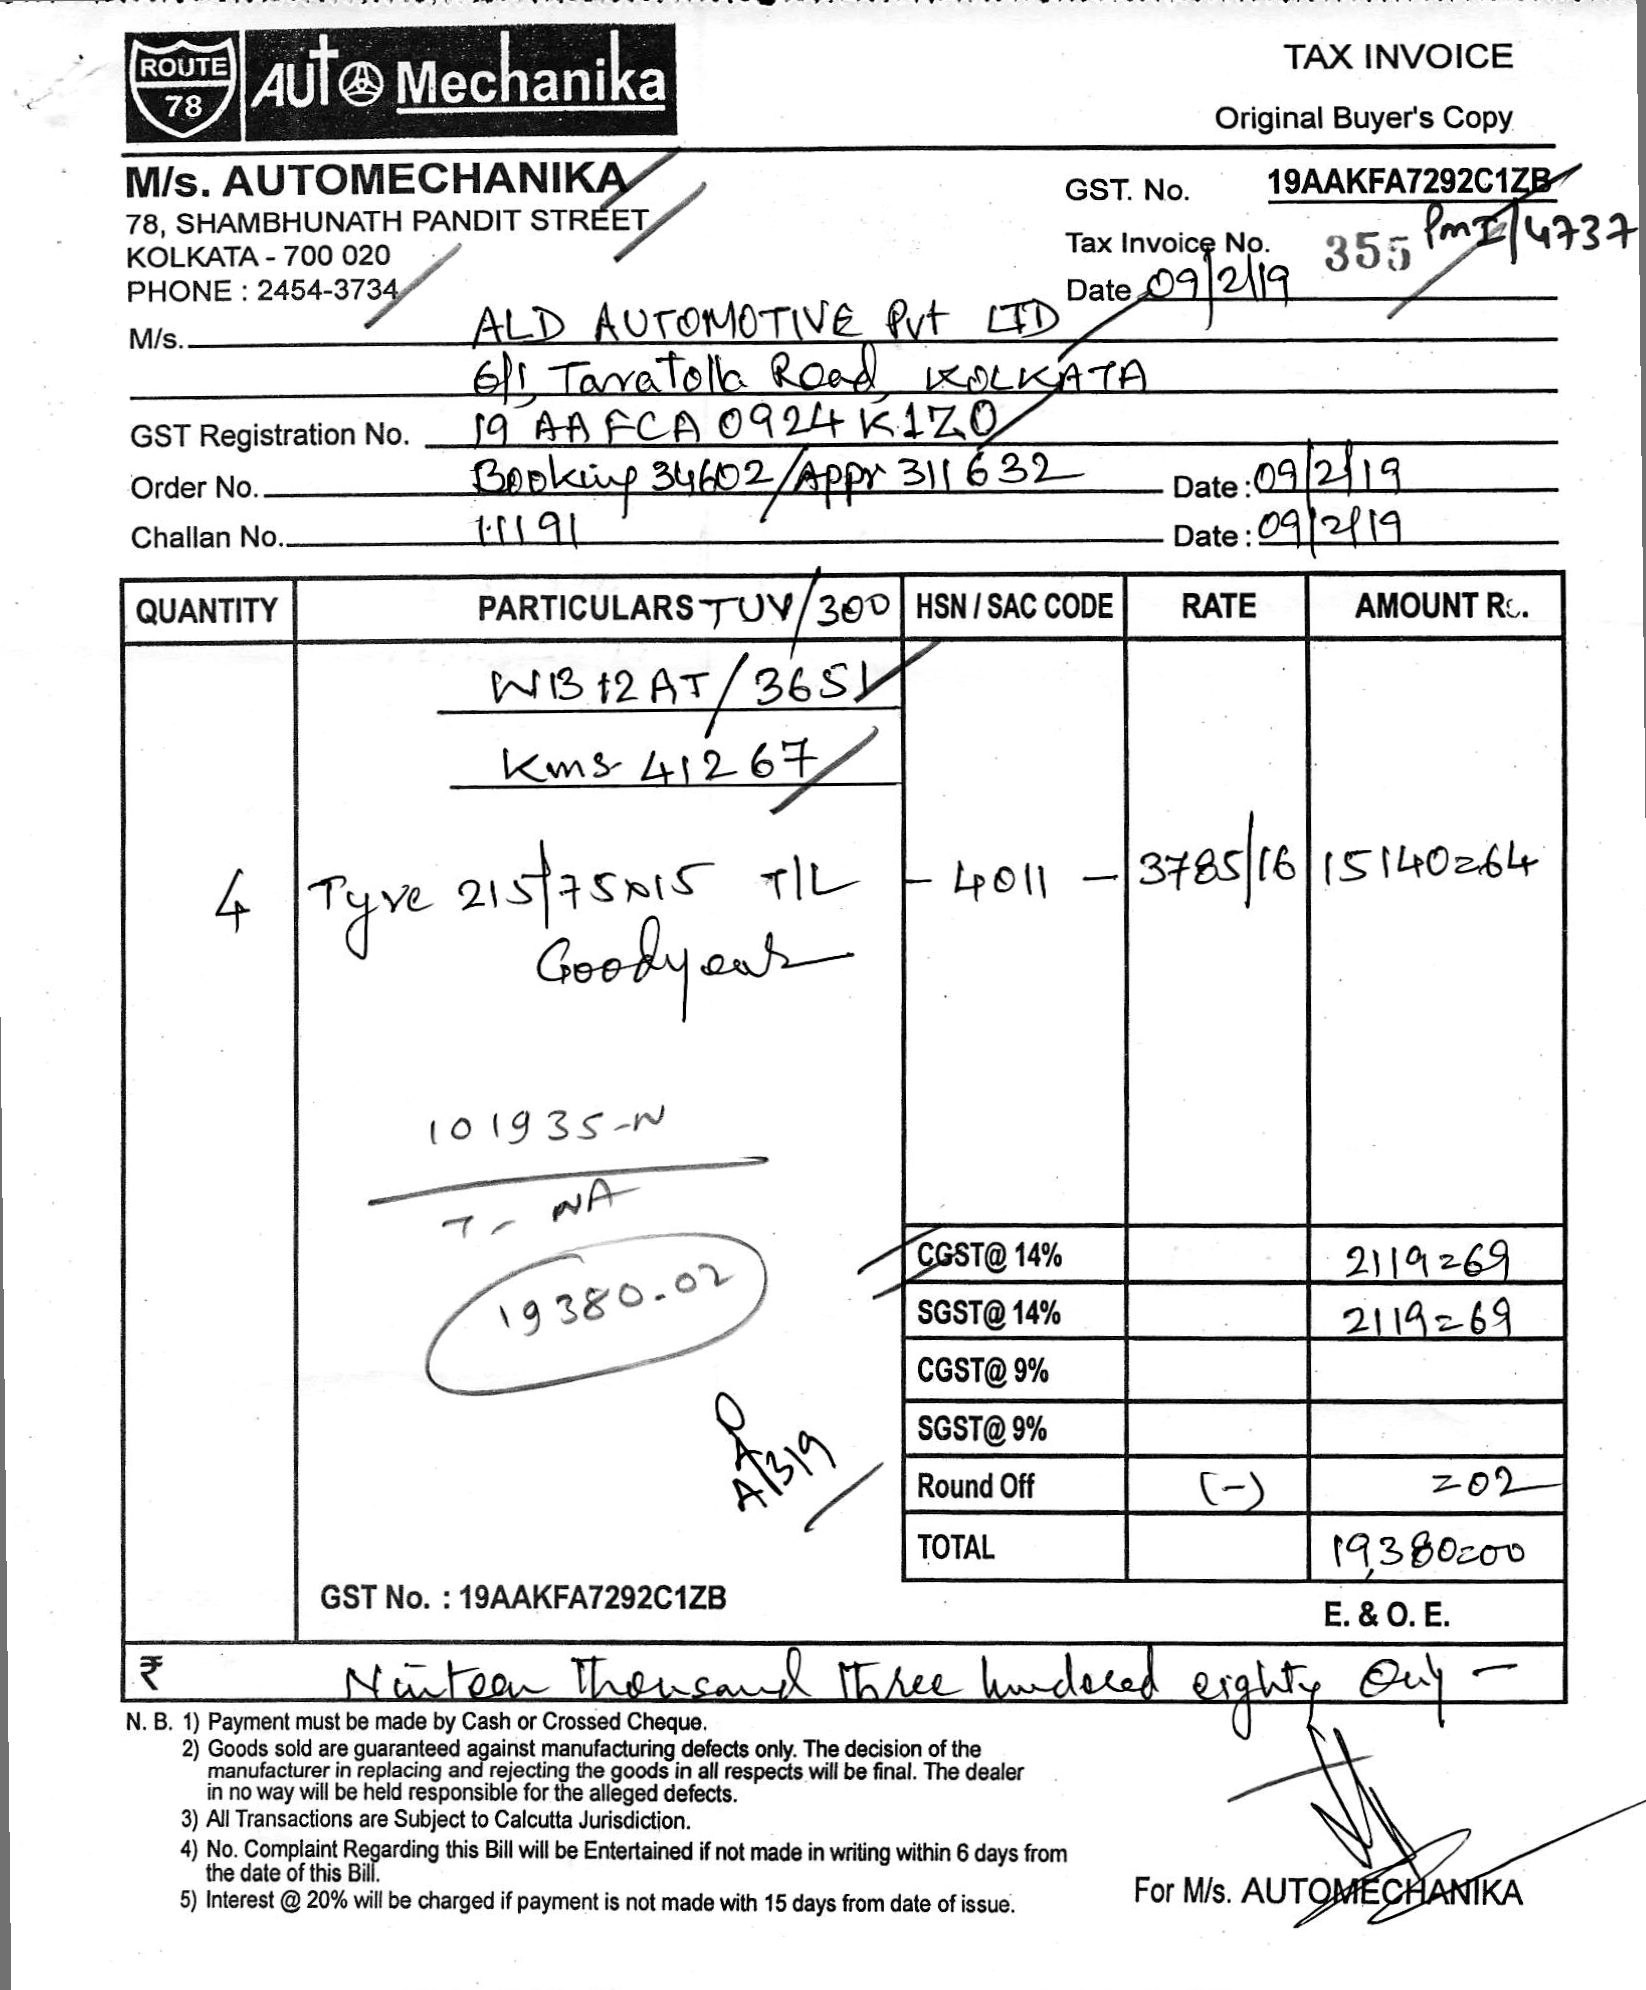 ROUTE 78 Auto Mechanika
TAX INVOICE
Original Buyer's Copy
M/s. AUTOMECHANIKA
78, SHAMBHUNATH PANDIT STREET
KOLKATA - 700 020
PHONE : 2454-3734
GST. No. 19AAKFA7292C1ZB
Tax Invoice No. 355 PmI/4737
Date 09/2/19
M/s. ALD AUTOMOTIVE Pvt LTD
6/1, Taratolla Road, KOLKATA
GST Registration No. 19 AAFCA0924K1ZO
Order No. Booking 34602/Appr 311632 Date : 09/2/19
Challan No. 11191 Date : 09/2/19
QUANTITY PARTICULARS TUV/300 HSN / SAC CODE RATE AMOUNT Rs.
WB12AT/3651
Kms 41267
4 Tyre 215/75R15 T/L - 4011 - 3785/16 15140=64
Goodyear
101935-N
T- NA
19380.02
CGST@ 14% 2119=69
SGST@ 14% 2119=69
CGST@ 9%
SGST@ 9%
Round Off (-) =02
TOTAL 19,380=00
GST No. : 19AAKFA7292C1ZB
E. & O. E.
₹ Ninteen Thousand Three hundered eighty Only -
N. B. 1) Payment must be made by Cash or Crossed Cheque.
2) Goods sold are guaranteed against manufacturing defects only. The decision of the
manufacturer in replacing and rejecting the goods in all respects will be final. The dealer
in no way will be held responsible for the alleged defects.
3) All Transactions are Subject to Calcutta Jurisdiction.
4) No. Complaint Regarding this Bill will be Entertained if not made in writing within 6 days from
the date of this Bill.
5) Interest @ 20% will be charged if payment is not made with 15 days from date of issue.
For M/s. AUTOMECHANIKA